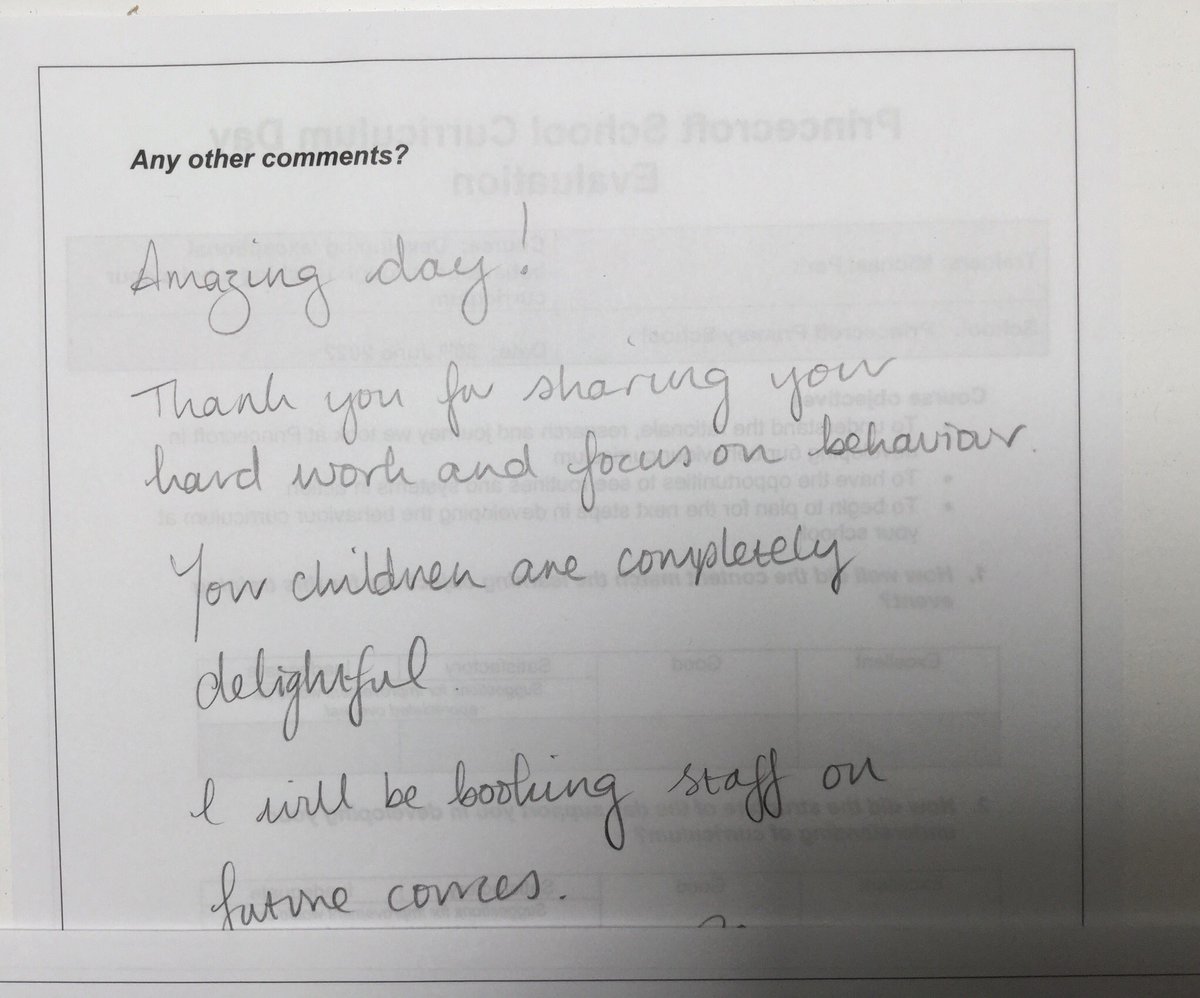 Any other comments?
Amazing day!
Thank you for sharing your
hard work and focus on behaviour.
Your children are completely
delightful.
I will be booking staff on
future cources.